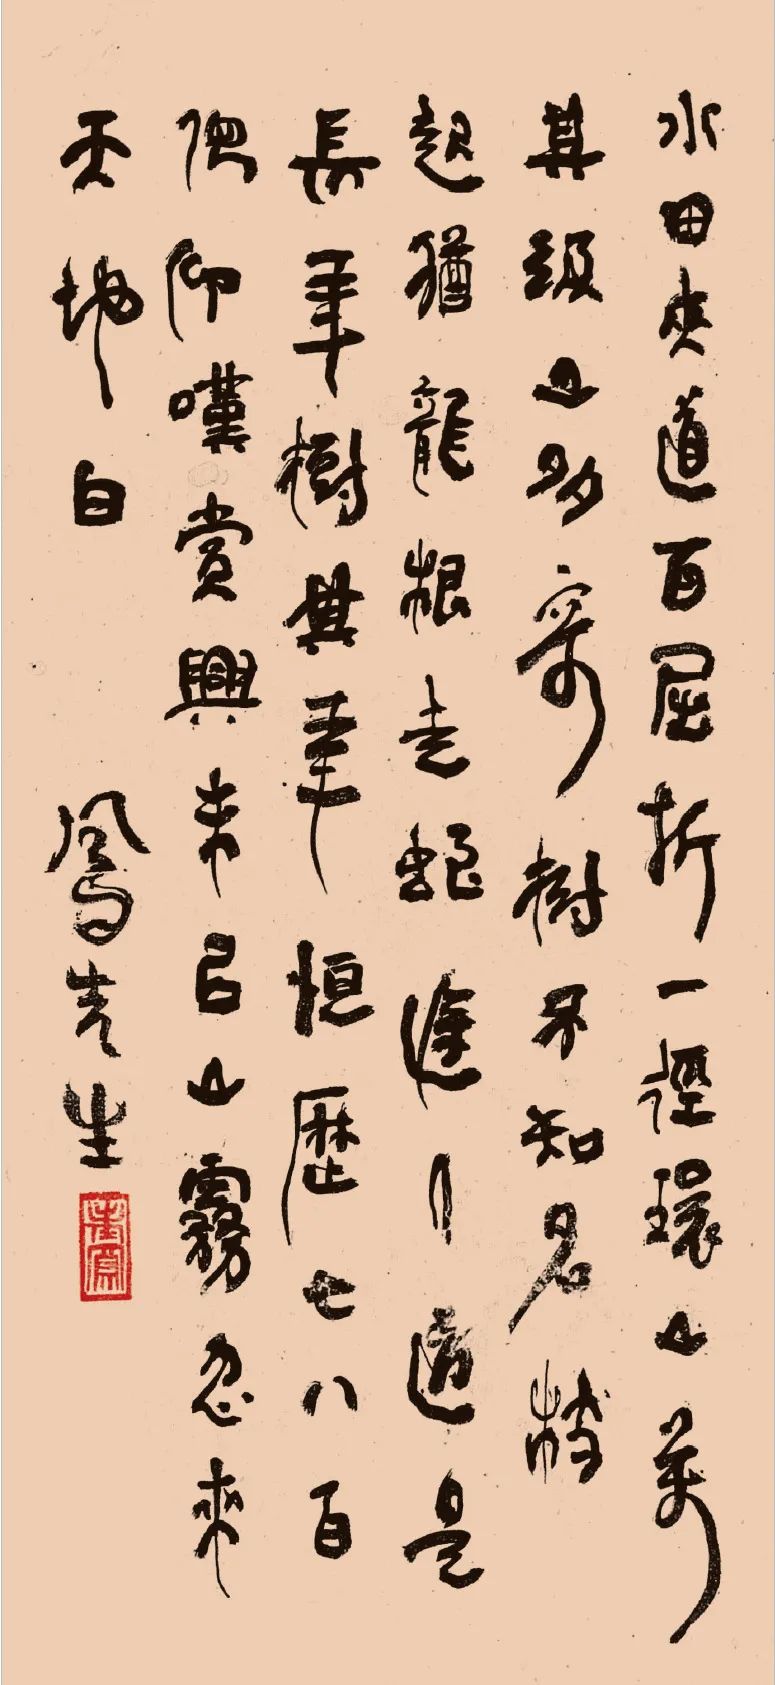 水田夾道百屈折一徑環山万
其頭山多寄樹不知名枝
起猶龍根走蛇逢人道是
長年樹其年恒歷七八百
俯仰嘆賞興未已山霧忽來
天地白 鳳先生